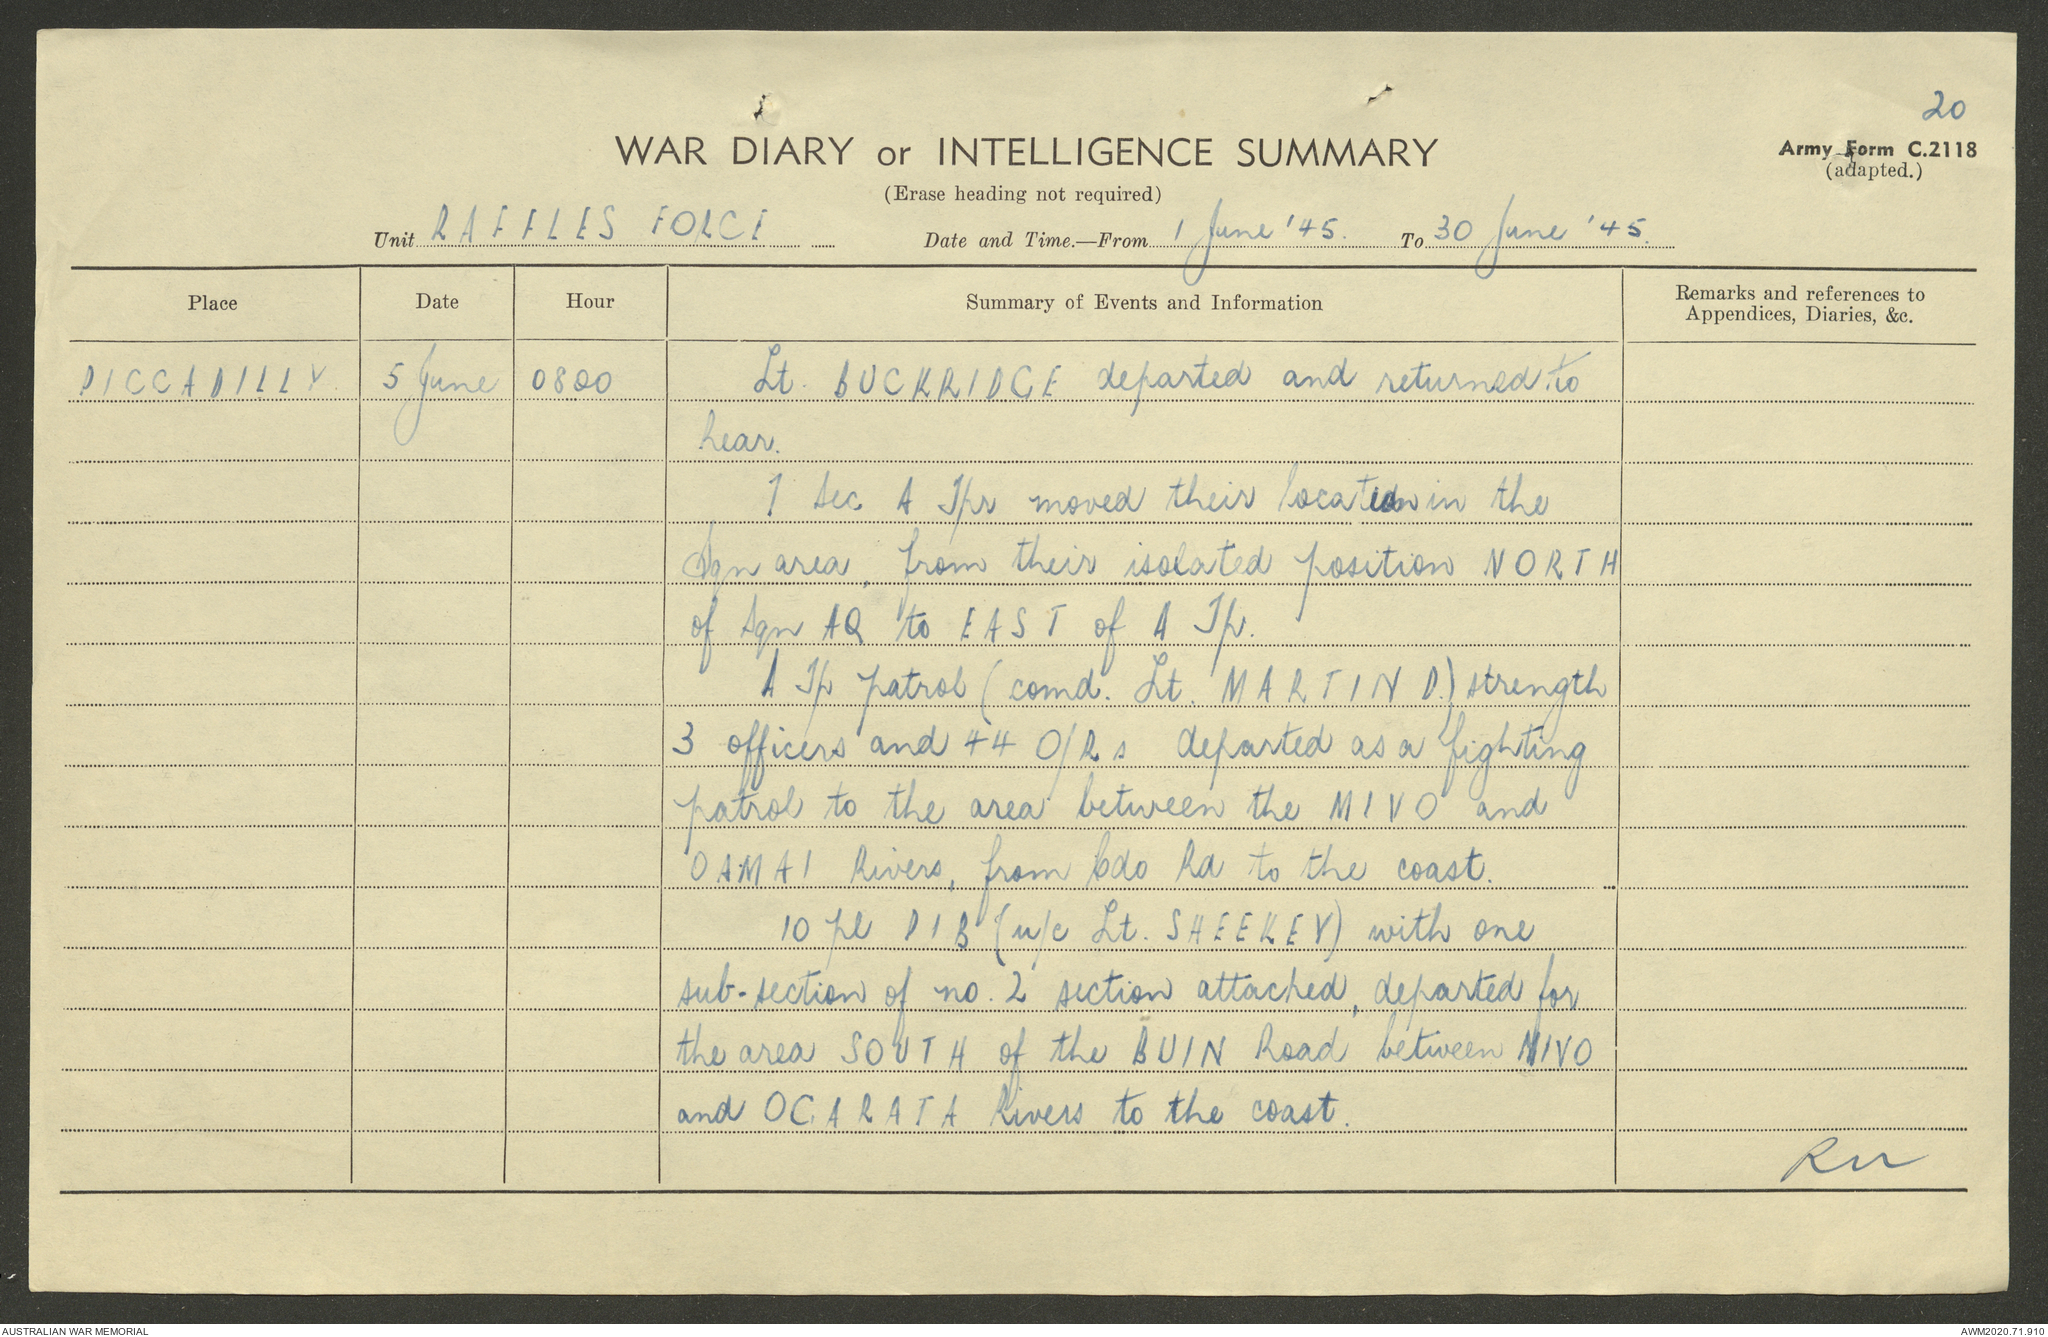 20
WAR DIARY or INTELLIGENCE SUMMARY
Army Form C.2118
(adapted.)
(Erase heading not required)
Unit RAFFLES FORCE Date and Time.—From 1 June '45. To 30 June '45.
Place Date Hour Summary of Events and Information Remarks and references to
Appendices, Diaries, &c.
PICCADILLY. 5 June 0800 Lt. BUCKRIDGE departed and returned to
hear.
1 Sec A Tpr moved their location in the
Sqn area, from their isolated position NORTH
of Sqn AQ to EAST of A Tp.
A Tp patrol (comd. Lt. MARTIN D.) strength
3 officers and 44 O/Rs departed as a fighting
patrol to the area between the MIVO and
OAMAI Rivers, from Cdo Rd to the coast.
10 pl PIB (u/c Lt. SHEEKEY) with one
sub-section of no. 2 section attached, departed for
the area SOUTH of the BUIN Road between MIVO
and OGARATA Rivers to the coast.
AUSTRALIAN WAR MEMORIAL
AWM2020.71.910